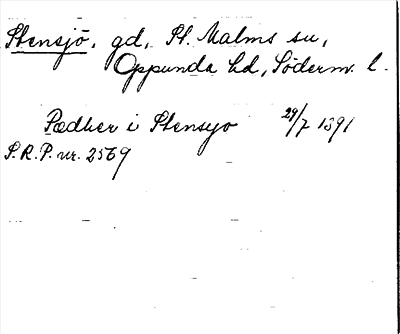 Stensjö, gd, St. Malms sn,
Oppunda hd, Söderm. l.
Pædher i Stensyo 29/7 1391
S.R.P. nr. 2569